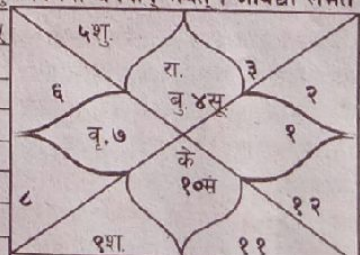 ५शु.
रा.
३
६
बु ४सू
२
वृ.७
१
के
१०मं
८
१२
९श.
११